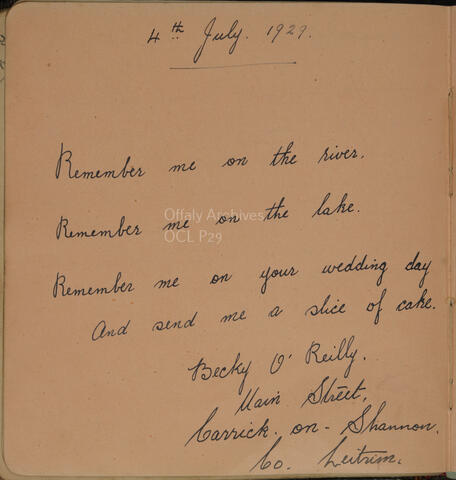 4th July. 1929.
Remember me on the river.
Remember me on the lake.
Offaly Archives
OCL P29
Remember me on your wedding day
And send me a slice of cake.
Becky O' Reilly.
Main Street,
Carrick-on-Shannon.
Co. Leitrim.